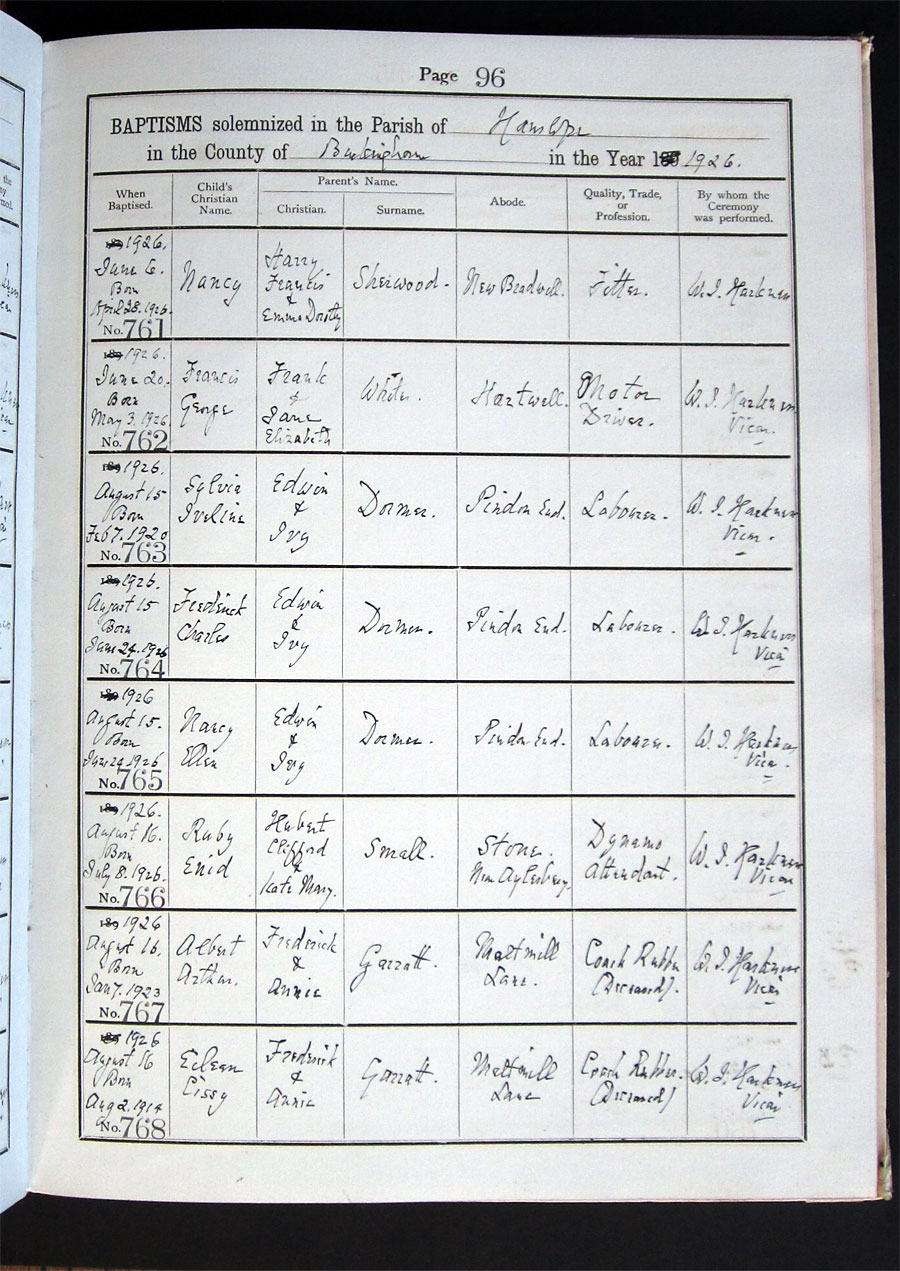 Page 96
BAPTISMS solemnized in the Parish of Hanslope
in the County of Buckingham in the Year 1926.
When Baptised.
Child's Christian Name.
Parent's Name.
Christian.
Surname.
Abode.
Quality, Trade, or Profession.
By whom the Ceremony was performed.
1926.
June 6.
Born
April 28. 1926.
No. 761
Nancy
Harry
Francis
&
Emma Dorothy
Sherwood.
New Bradwell.
Fitter.
W. J. Harkness
1926.
June 20.
Born
May 3. 1926
No. 762
Francis
George
Frank
&
Jane
Elizabeth
White.
Hartwell.
Motor
Driver.
W. J. Harkness
Vicar.
1926.
August 15
Born
Feb 7. 1920
No. 763
Sylvia
Iveline
Edwin
&
Ivy
Dormer.
Pindon End.
Labourer.
W. J. Harkness
Vicar.
1926.
August 15
Born
June 24. 1926
No. 764
Frederick
Charles
Edwin
&
Ivy
Dormer.
Pindon End.
Labourer.
W. J. Harkness
Vicar
1926
August 15.
Born
June 24 1926
No. 765
Nancy
Ellen
Edwin
&
Ivy
Dormer.
Pindon End.
Labourer.
W. J. Harkness
Vicar.
1926.
August 16.
Born
July 8. 1926.
No. 766
Ruby
Enid
Hubert
Clifford
&
Kate Mary.
Small.
Stone.
Nr Aylesbury.
Dynamo
Attendant.
W. J. Harkness
Vicar
1926
August 16.
Born
Jan 7. 1923
No. 767
Albert
Arthur.
Frederick
&
Annie
Garratt.
Maltmill
Lane.
Coach Rubber
(Deceased).
W. J. Harkness
Vicar
1926
August 16
Born
Aug 2. 1914
No. 768
Eileen
Cissy
Frederick
&
Annie
Garratt.
Maltmill
Lane
Coach Rubber.
(Deceased)
W. J. Harkness
Vicar